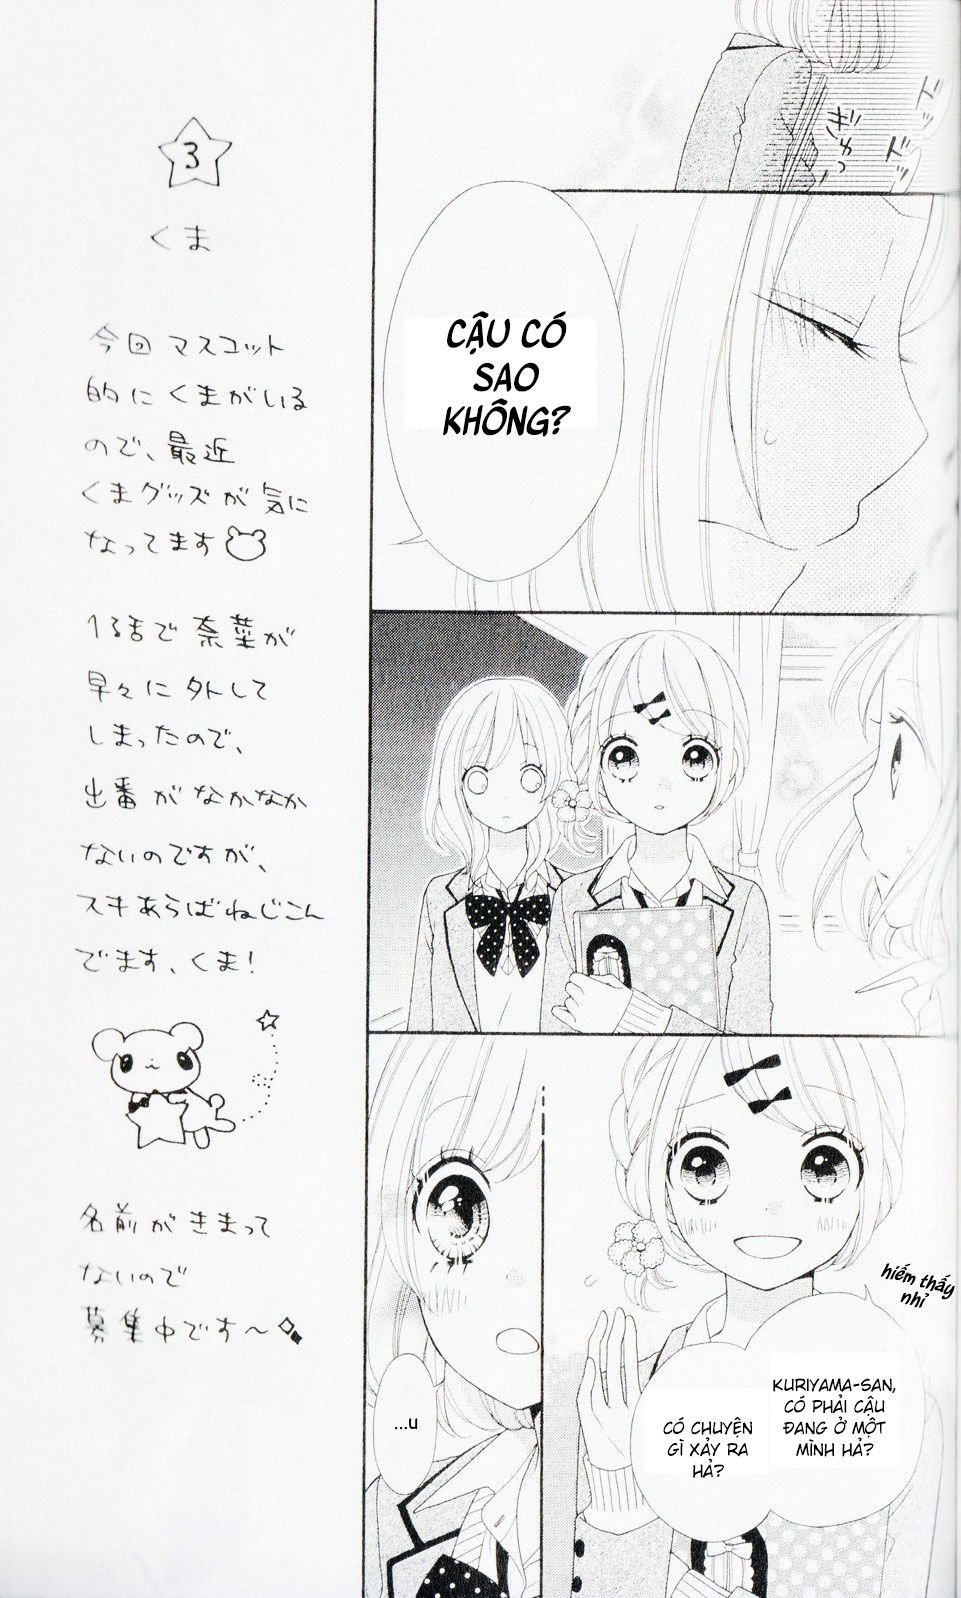 ドッ
ドッ
ぎゅっ
CẬU CÓ
SAO
KHÔNG?
hiếm thấy
nhỉ
KURIYAMA-SAN,
CÓ PHẢI CẬU
ĐANG Ở MỘT
MÌNH HẢ?
CÓ CHUYỆN
GÌ XẢY RA
HẢ?
...U
3
くま
今回マスコット
的にくまがいる
ので、最近
くまグッズが気に
なってます
1る舌で奈菜が
早々に外して
しまったので、
出番がなかなか
ないのですが、
スキあらばねじこん
でます、くま!
名前がきまって
ないので
募集中です〜